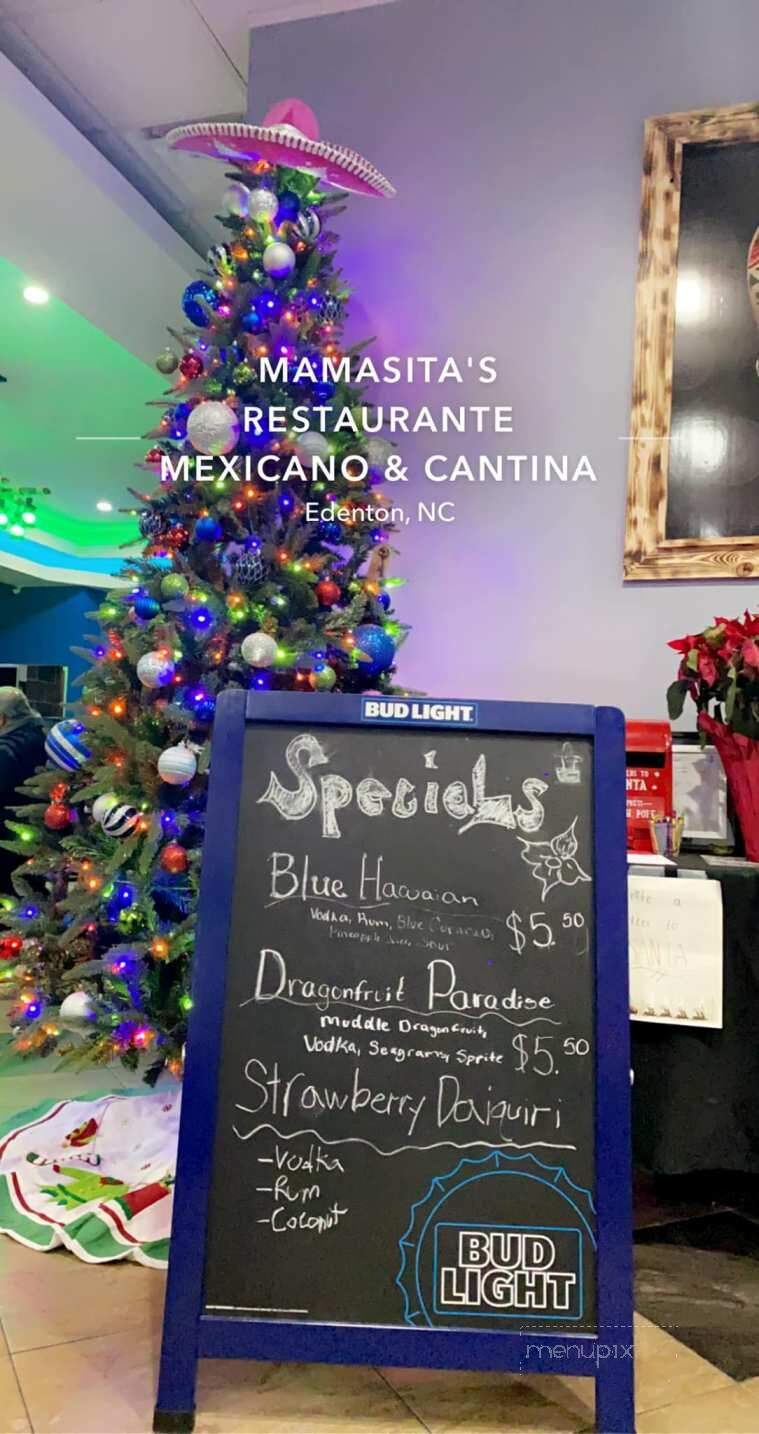 MAMASITA'S
RESTAURANTE
MEXICANO & CANTINA
Edenton, NC
BUD LIGHT
Specials
Blue Hawaian
Vodka, Rum, Blue Curacao,
Pineapple Juice, Sour
$5.50
Dragonfruit Paradise
Muddle Dragonfruit,
Vodka, Seagrams, Sprite $5.50
Strawberry Daiquiri
-Vodka
-Rum
-Coconut
BUD
LIGHT
TO
NTA
menupix